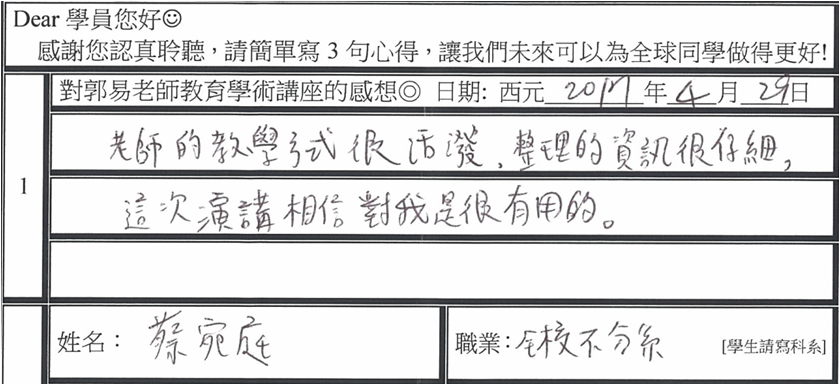 Dear 學員您好☺
感謝您認真聆聽，請簡單寫 3 句心得，讓我們未來可以為全球同學做得更好!
對郭易老師教育學術講座的感想◎ 日期: 西元 2017 年 4 月 29 日
1
老師的教學方式很活潑、整理的資訊很仔細，
這次演講相信對我是很有用的。
姓名： 蔡宛庭 職業: 全校不分系 [學生請寫科系]